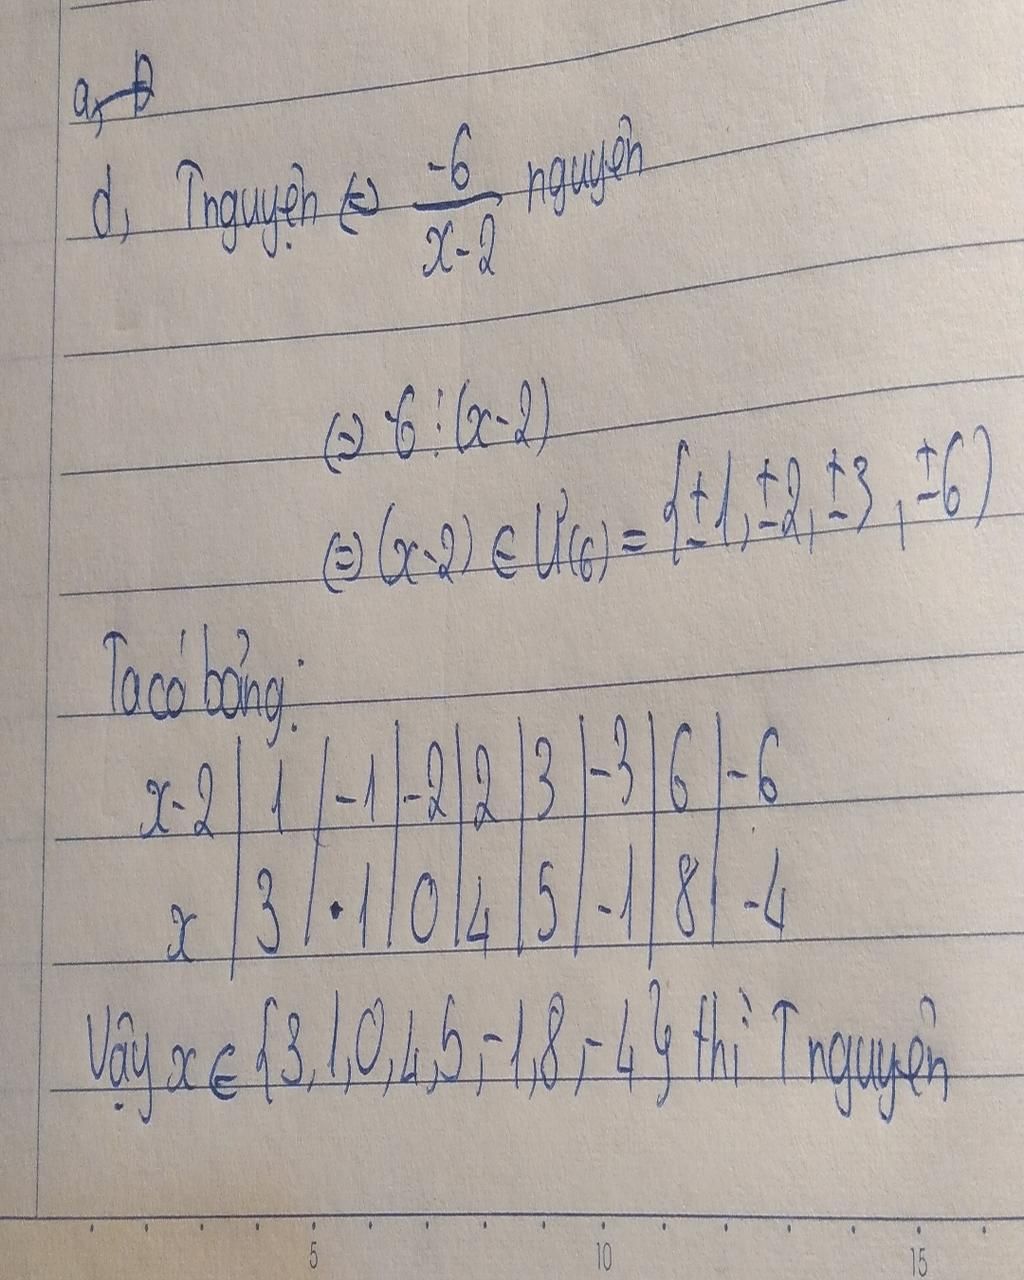 a,
d, T nguyên ⇔ -6/(x-2) nguyên
⇔ -6 ⋮ (x-2)
⇔ (x-2) ∈ Ư(6) = {±1, ±2, ±3, ±6}
Ta có bảng:
x-2 | 1 | -1 | -2 | 2 | 3 | -3 | 6 | -6
x | 3 | 1 | 0 | 4 | 5 | -1 | 8 | -4
Vậy x ∈ {3, 1, 0, 4, 5, -1, 8, -4} thì T nguyên
5 10 15